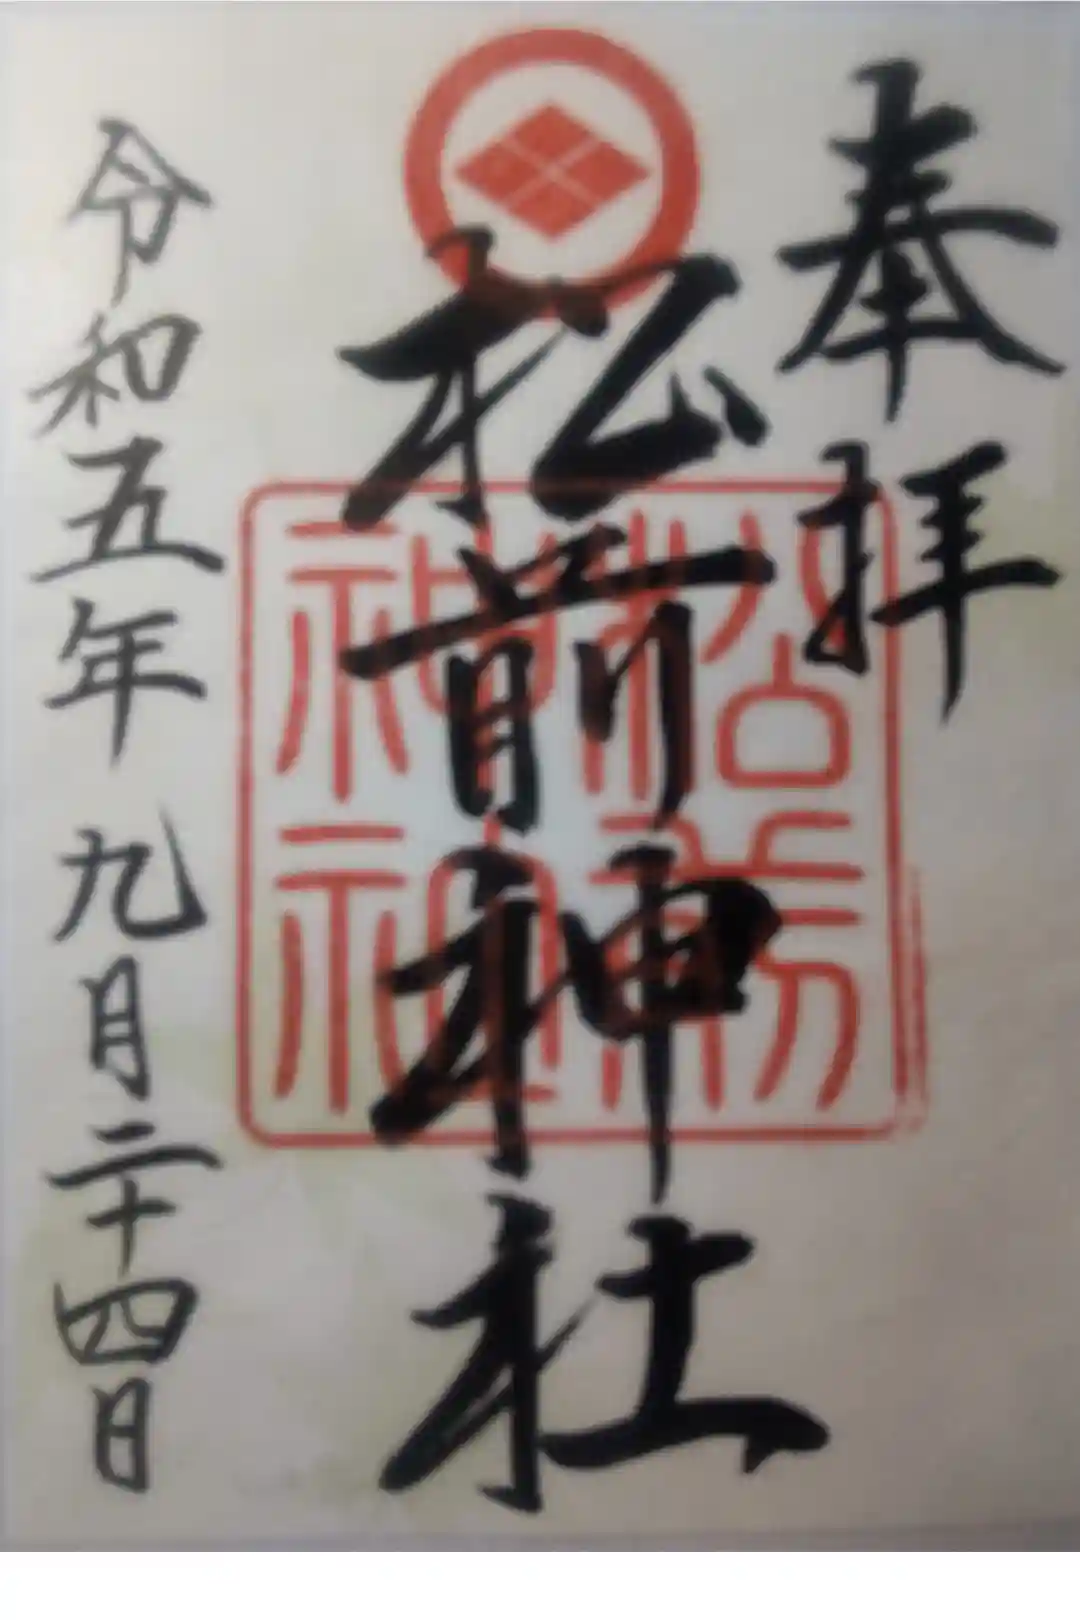 奉拝
松前神社
松前神社
令和五年 九月二十四日